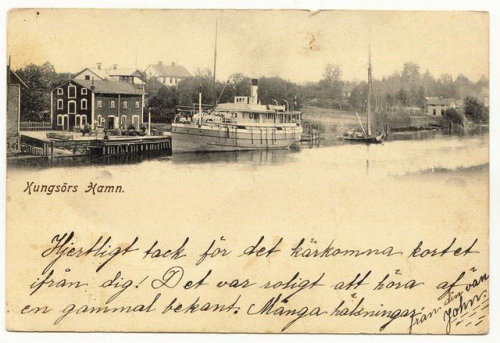 Kungsörs Hamn.
Hjertligt tack för det kärkomna kortet
ifrån dig! Det var roligt att höra af
en gammal bekant. Många hälsningar
från dig vän
John.